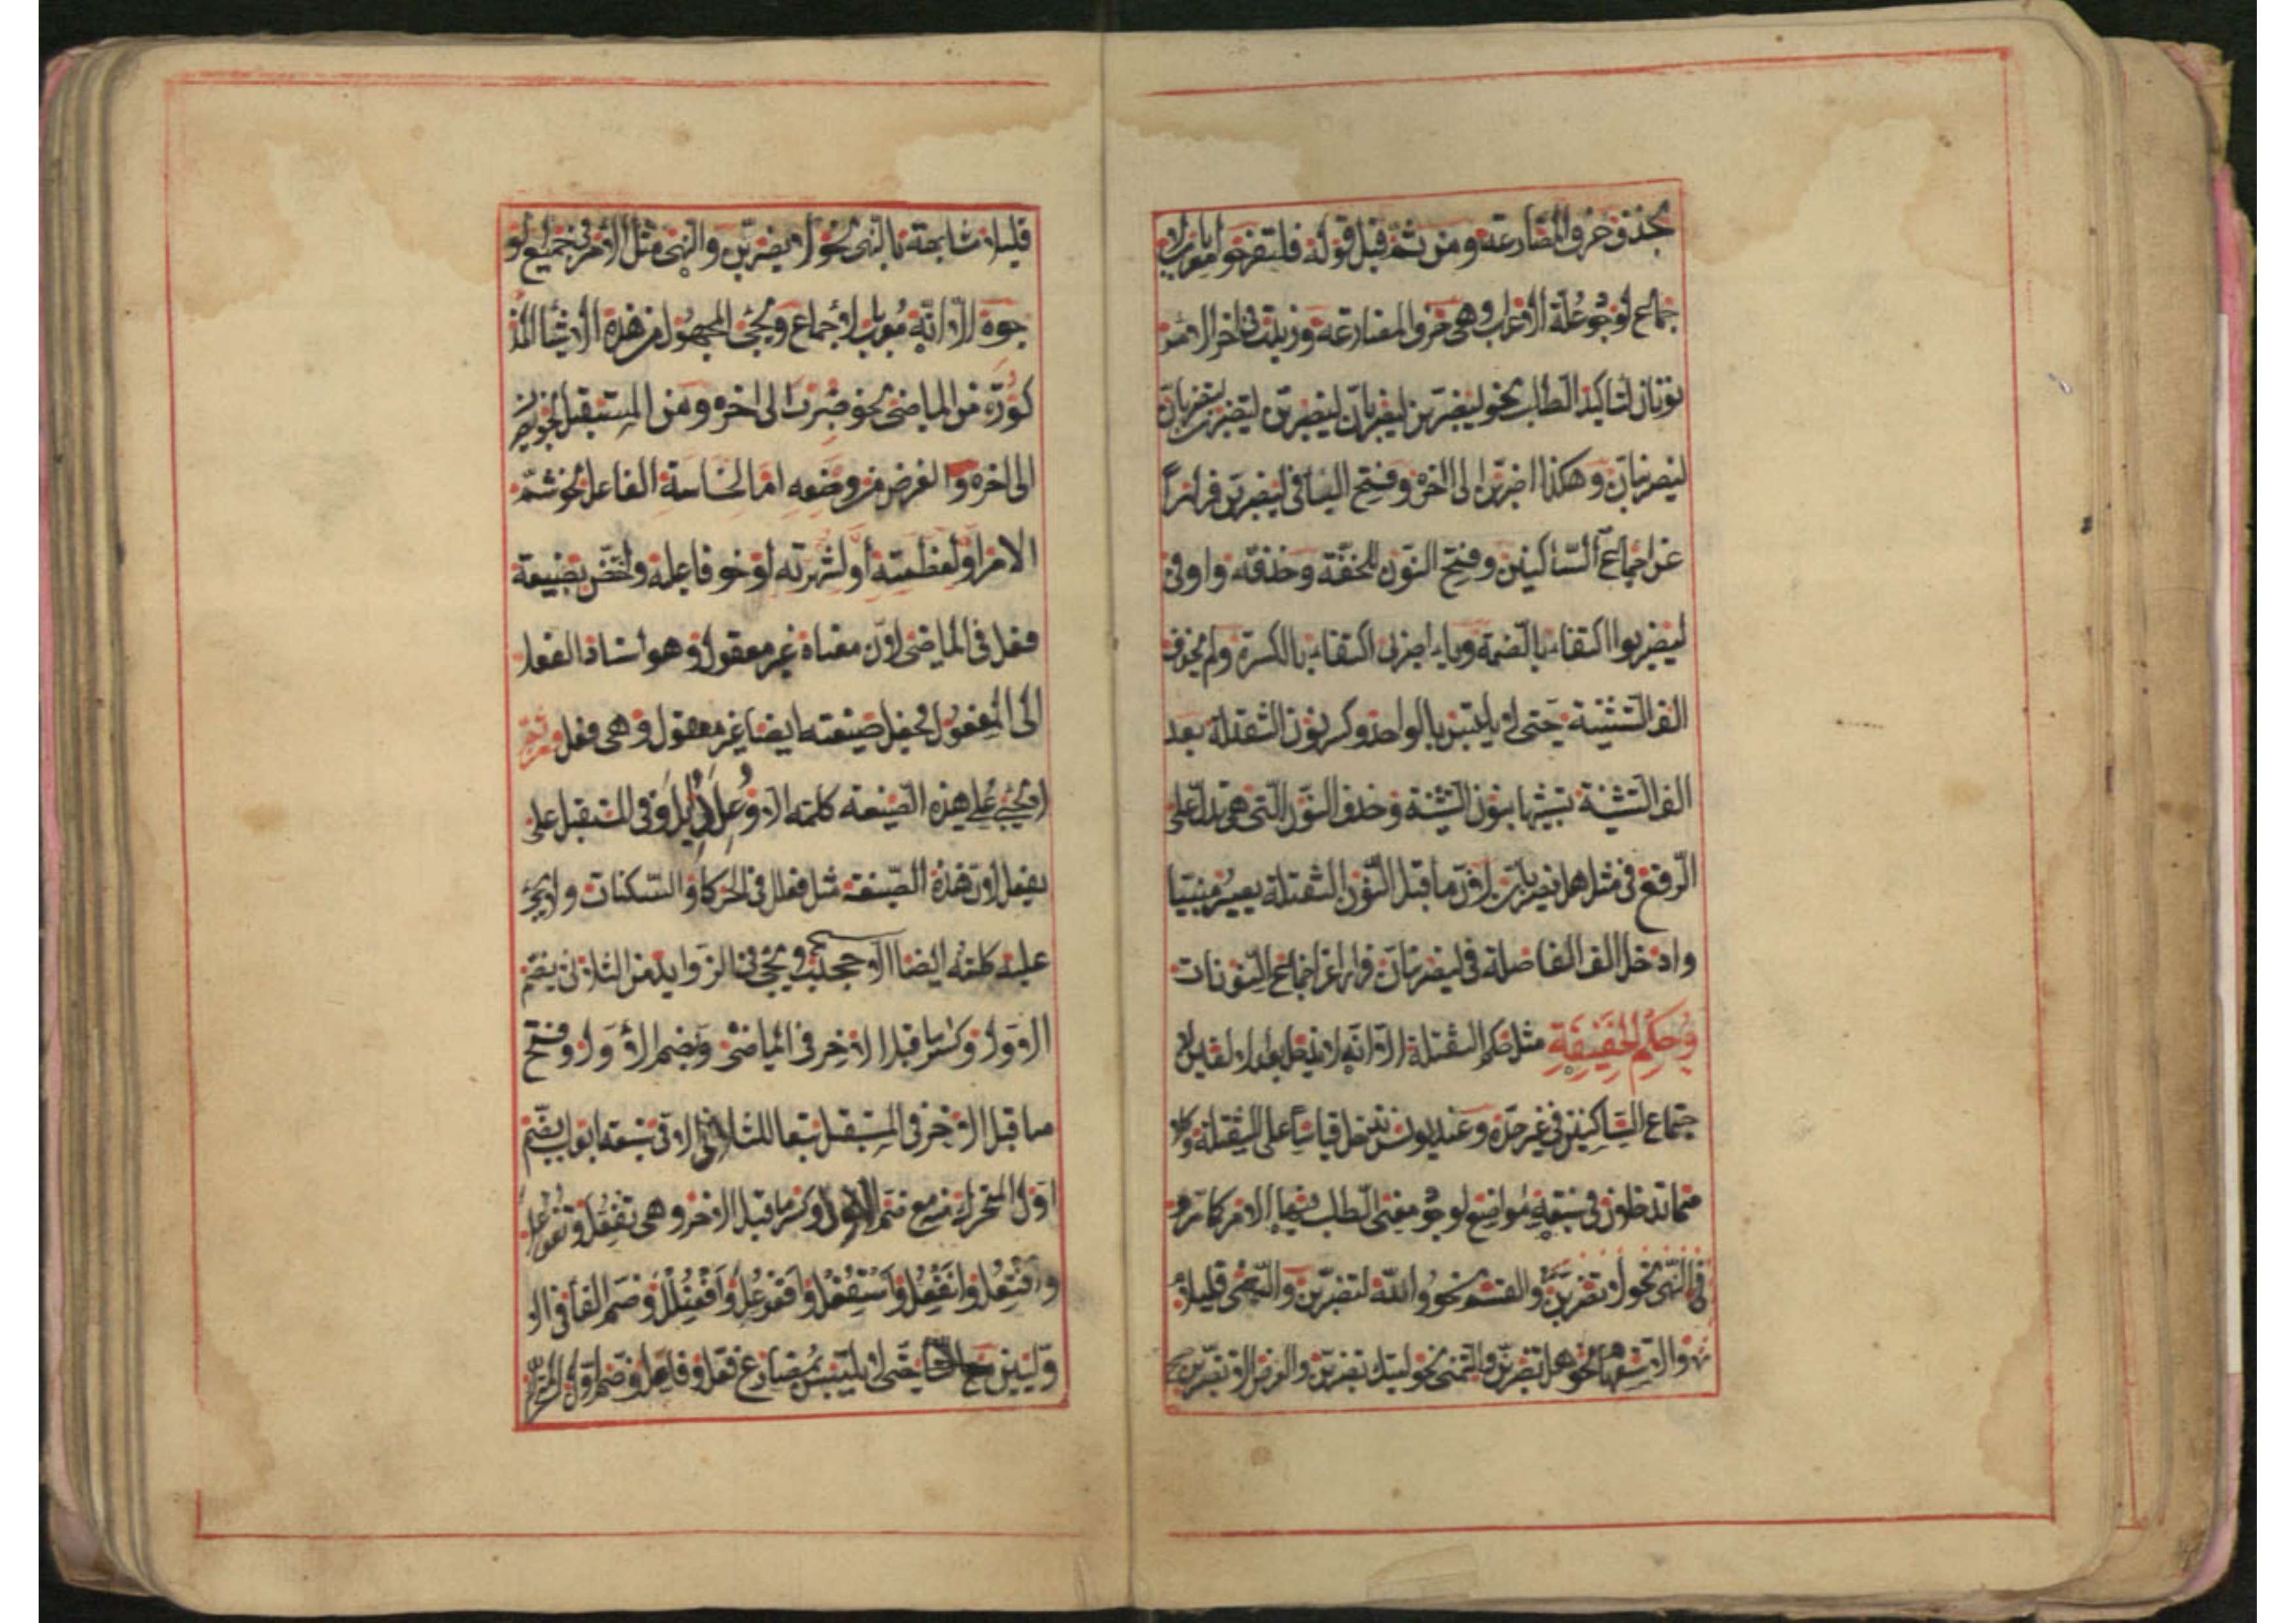 بحذف حرف المضارعة ومن ثمه قيل قوله فلتفرحوا معرب بالا
جماع لوجود علة الاعراب وهي حرف المضارعة وزيدت في اخر الامر
نونان لتاكيد الطلب نحو ليضربن ليضربان ليضربن لتضربن لتضربان
ليضربنان وهكذا اضربن الى اخره وفتح البا في ليضربن فرارا
عن اجتماع الساكنين وفتح النون للخفة وحذفه واو في
ليضربوا اكتفاء بالضمة وياء اضربي اكتفاء بالكسرة ولم يحذف
الف التثنية حتى لا يلتبس بالواحد وكسر نون الثقيلة بعد
الف التثنية تشبيها بنون التثنية وحذف النون التي هي تدل على
الرفع في مثل هل يضربان لان ما قبل النون الثقيلة يصير مبنيا
وادخل الف الفاصلة في ليضربنان فرارا عن اجتماع النونات
وحكم الخفيفة مثل حكم الثقيلة الا انه لا يدخل بعد الالفين لا
جتماع الساكنين في غير حده وعند يونس يدخل قياسا على الثقيلة وكلا
هما تدخلون في سبعة مواضع لوجود معنى الطلب فيها الامر كما مر و
في النهي نحو لا تضربن والقسم نحو والله لتضربن والنفي قليلا
والاستفهام نحو هل تضربن والتمني نحو ليتك تضربن والعرض الا تضربن
قليلا مشابهة بالنهي نحو لا يضربن والنهي مثل الامر في جميع الو
جوه الا انه معرب بالاجماع ويجئ المجهول من هذه الاشيا المذ
كورة من الماضي نحو ضرب الى اخره ومن المستقبل نحو يضر
الى اخره والغرض من وضعه اما لخساسة الفاعل نحو شتم
الامر او لعظمته او لشهرته او خوف فاعله واختص بصيغة
فعل في الماضي لان معناه غير معقول وهو اسناد الفعل
الى المفعول فجعل صيغته ايضا غير معقول وهي فعل ومن ثم
لا يجئ على هذه الصيغة كلمة الا وعل ودئل وفي المستقبل على
يفعل لان هذه الصيغة مثل فعلل في الحركات والسكنات ولا يجئ
عليه كلمة ايضا الا جحدب ويجئ في الزوايد من الثلاثي بضم
الاول وكسر ما قبل الاخر في الماضي وبضم الاول وفتح
ما قبل الاخر في المستقبل تبعا للثلاثي الا في سبعة ابواب يضم
اول المتحرك منه مع ضم الاول وكسر ما قبل الاخر وهي تفعل وتفوعل
وافتعل وانفعل واستفعل وافعوعل وافعنلل وضم الفا في الا
ولين حتى لا يلتبس بمضارع فعل وفاعل وضم اول المتحر